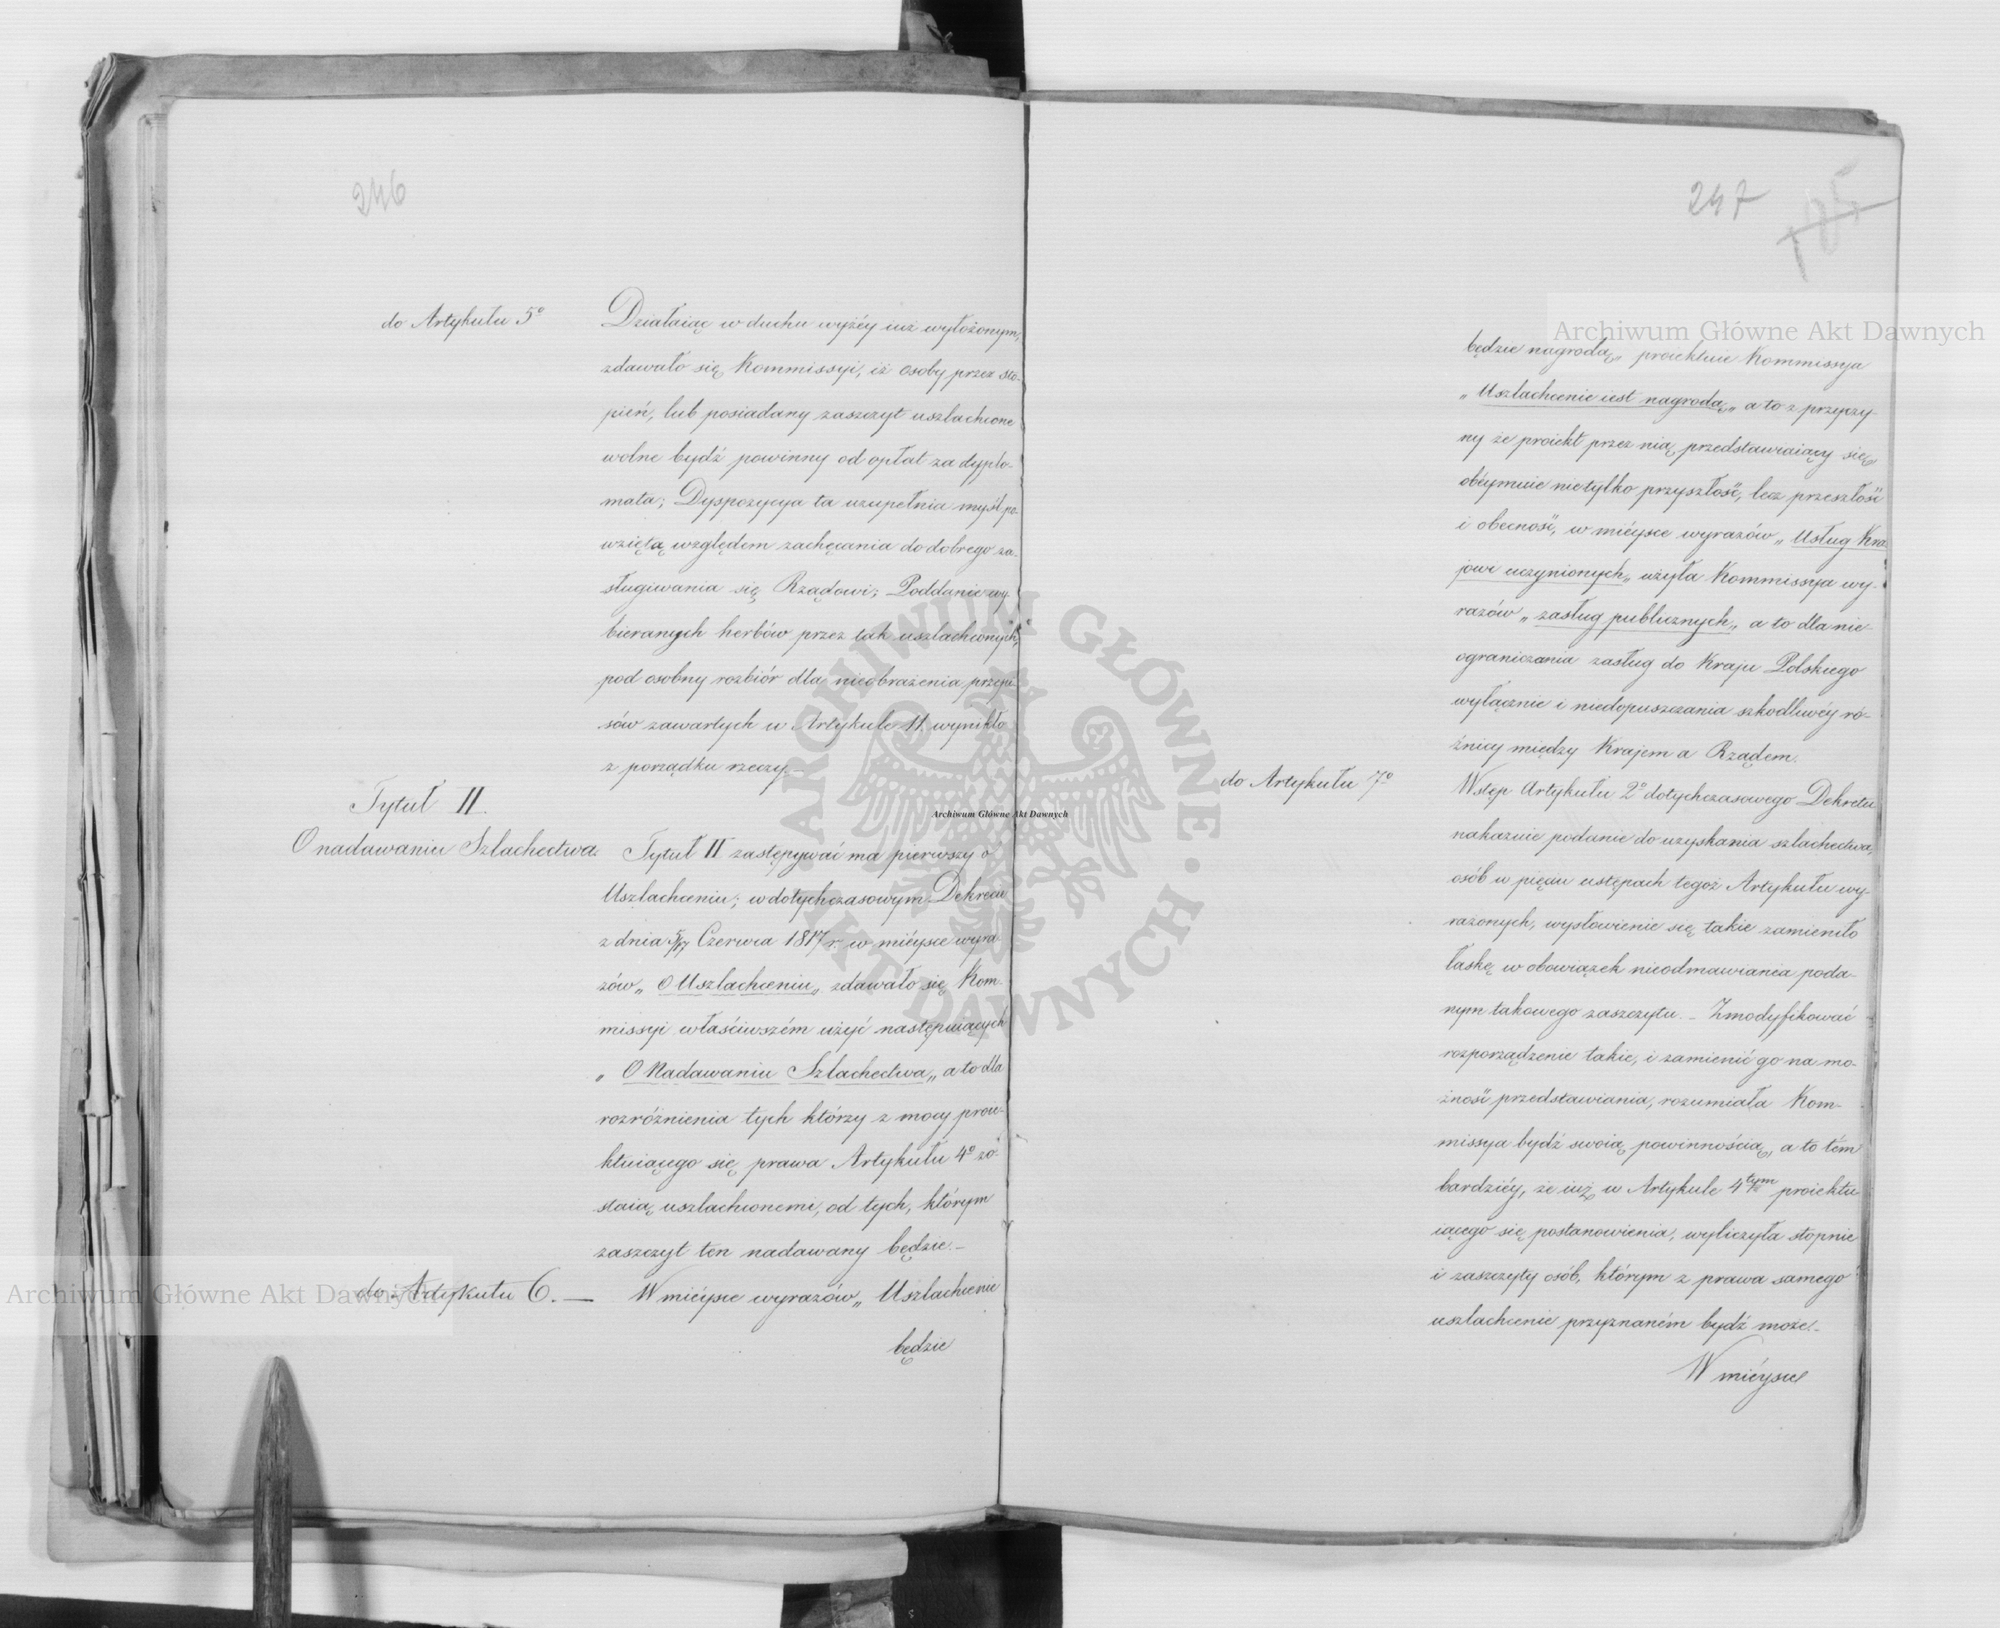 246
do Artykułu 5º
Działaiąc w duchu wyżéy iuż wyłożonym,
zdawało się Kommissyi, iż osoby przez sto-
pień, lub posiadany zaszczyt uszlachcone
wolne bydź powinny od opłat za dyplo-
mata; Dyspozycya ta uzupełnia myśl po-
wziętą względem zachęcania do dobrego za-
sługiwania się Rządowi; Poddanie wy-
bieranych herbów przez tak uszlachconych,
pod osobny rozbiór dla nieobrażenia przepi-
sów zawartych w Artykule 11, wynikło
z porządku rzeczy.
Tytuł II.
O nadawaniu Szlachectwa.
Tytuł II zastępywać ma pierwszy o
Uszlachceniu; w dotychczasowym Dekrecie
z dnia 5/17 Czerwca 1817 r. w mieysce wyra
zów „O Uszlachceniu„ zdawało się Kom-
missyi właściwszém użyć następuiących
„O Nadawaniu Szlachectwa„ a to dla
rozróżnienia tych którzy z mocy proie-
ktuiącego się prawa Artykułu 4º zo-
staią uszlachconemi, od tych, którym
zaszczyt ten nadawany będzie.-
do Artykułu 6. —
W mieysce wyrazów „Uszlachcenie
będzie
247
185
będzie nagrodą„ proiektuie Kommissya
„Uszlachcenie iest nagrodą„ a to z przyczy-
ny że proiekt przez nią przedstawiaiący się
obéymuie nietylko przyszłość, lecz przeszłość
i obecność, w mieysce wyrazów „Usług Kra-
jowi uczynionych„ użyła Kommissya wy-
razów „zasług publicznych„ a to dla nie-
ograniczania zasług do Kraju Polskiego
wyłącznie i niedopuszczania szkodliwéy ró-
żnicy między Krajem a Rządem.
do Artykułu 7º
Wstęp Artykułu 2º dotychczasowego Dekretu
nakazuie podanie do uzyskania szlachectwa,
osób w pięciu ustępach tegoż Artykułu wy-
rażonych, wysłowienie się takie zamieniło
łaskę w obowiązek nieodmawiania poda-
nym takowego zaszczytu. - Zmodyfikować
rozporządzenie takie, i zamienić go na mo-
żność przedstawiania, rozumiała Kom-
missya bydź swoią powinnością, a to tém
bardziéy, że iuż w Artykule 4tym proiektu
iącego się postanowienia, wyliczyła stopnie
i zaszczyty osób, którym z prawa samego
uszlachcenie przyznaném bydź może.-
W mieysce
Archiwum Główne Akt Dawnych
Archiwum Główne Akt Dawnych
Archiwum Główne Akt Dawnych
ARCHIWUM GŁÓWNE AKT DAWNYCH